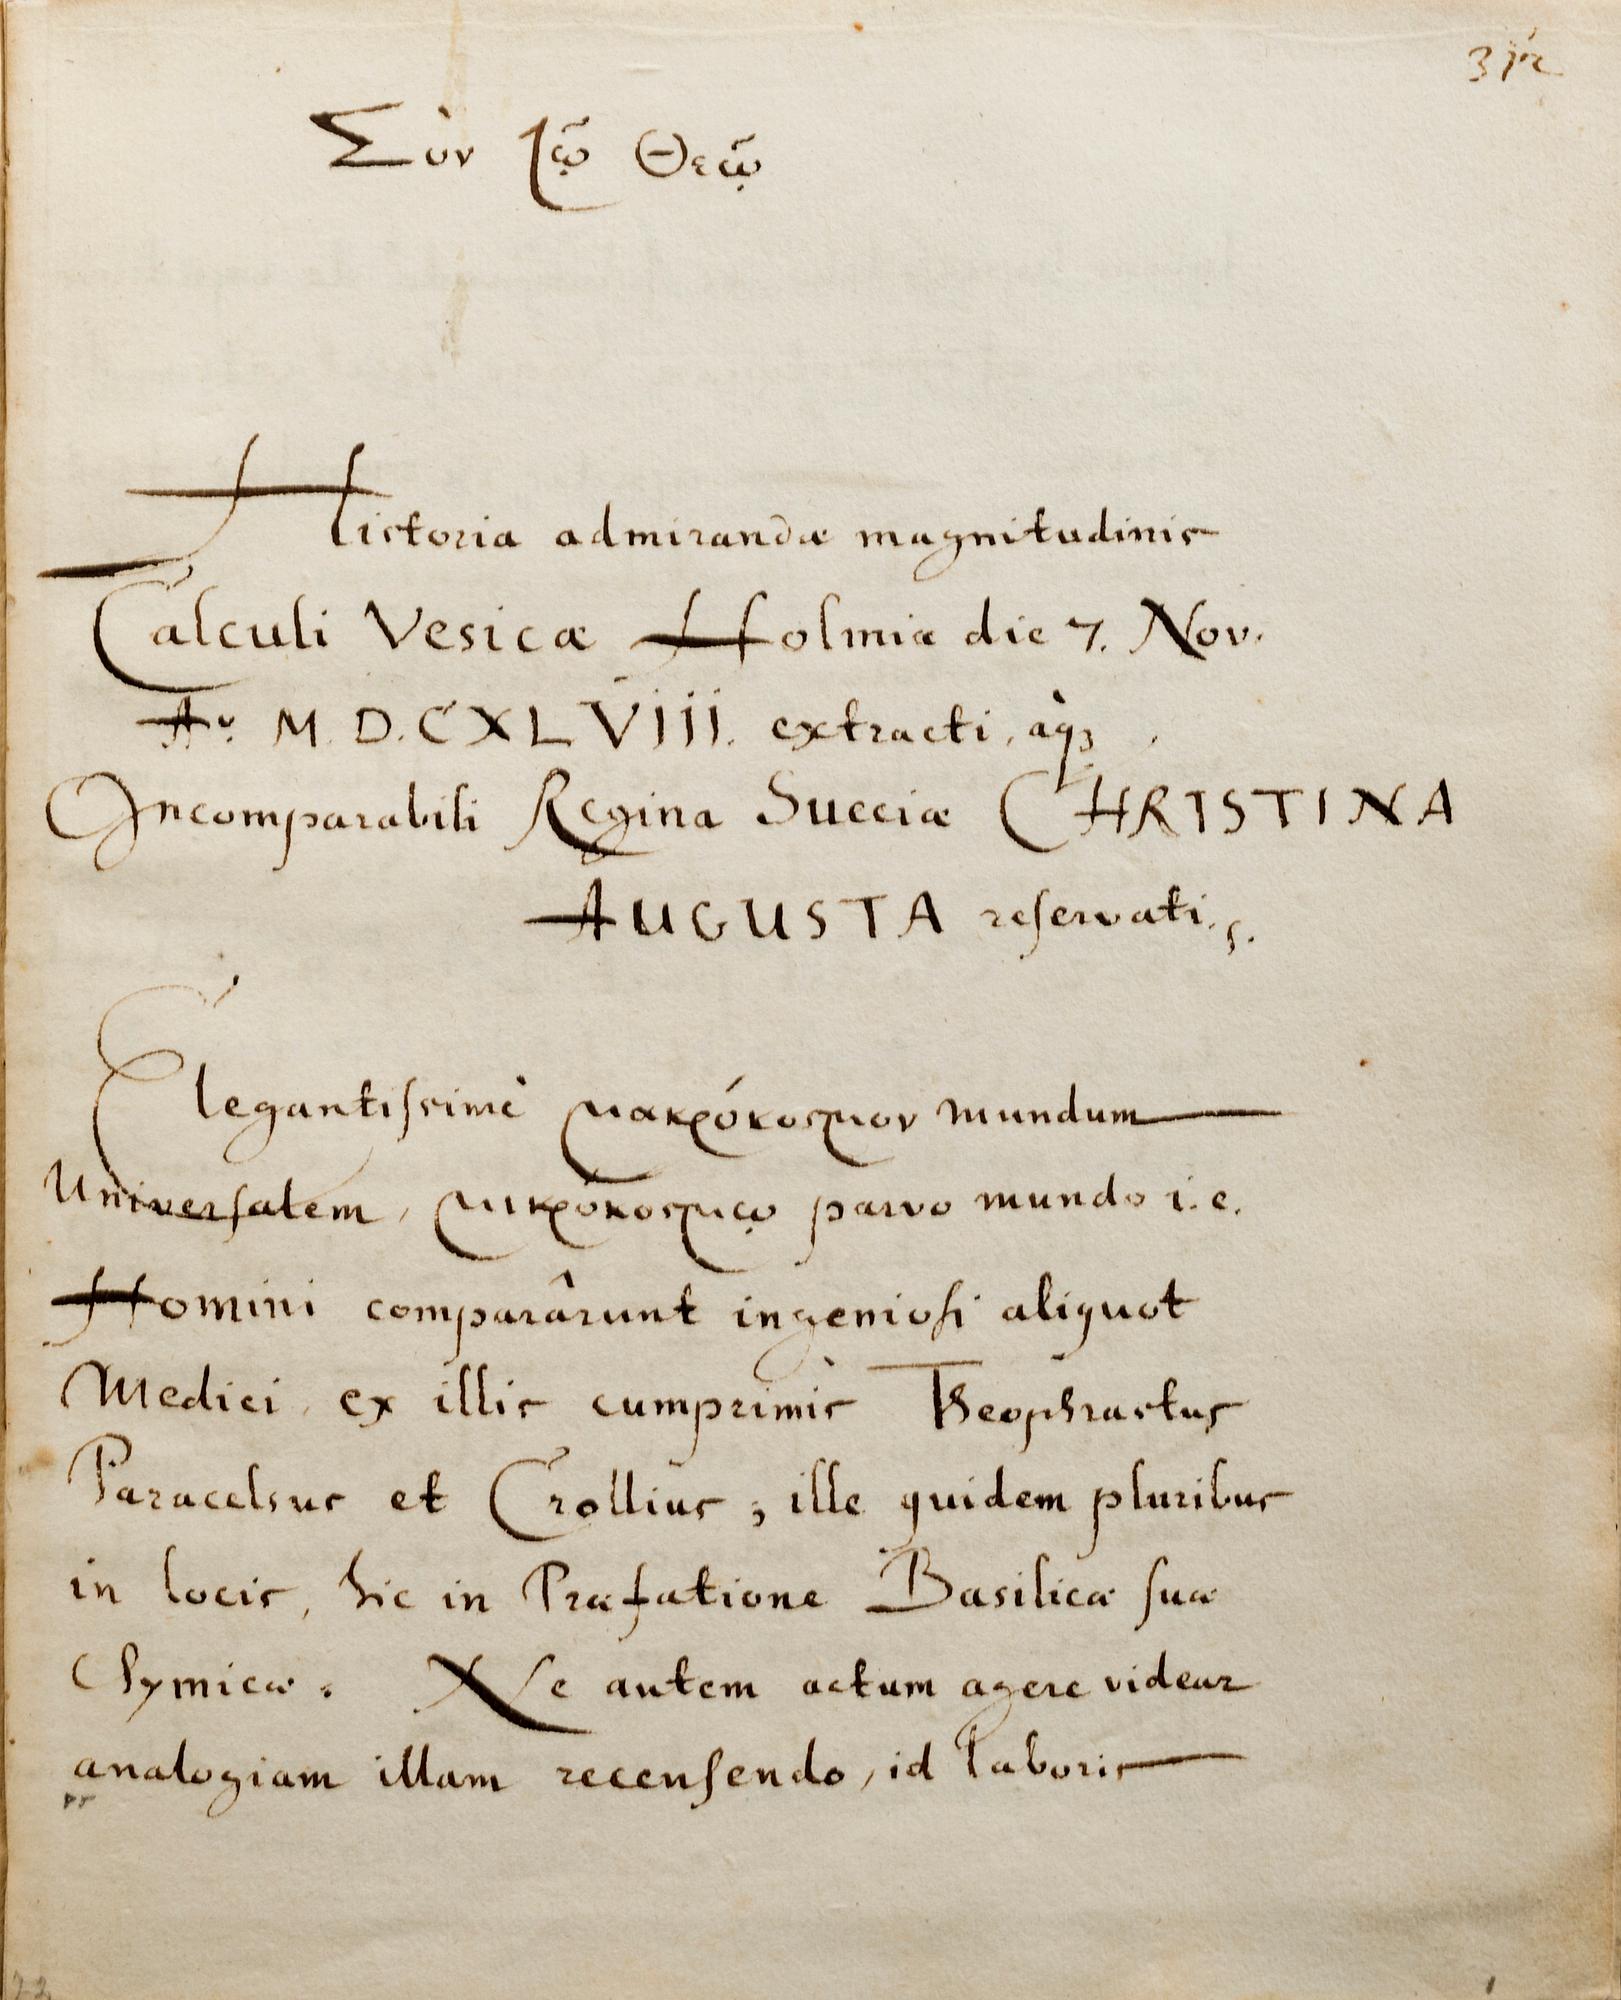 Σὺν τῷ Θεῷ
Historia admirandæ magnitudinis
Calculi Vesicæ Holmiæ die 7. Nov.
Aº. M. D. C XL VIII. extracti, àq́ꝫ
Incomparabili Regina Sueciæ CHRISTINA
AUGUSTA reſervati.
Elegantiſsimè μακρόκοσμον mundum
Universalem, μικρόκοσμῳ parvo mundo i. e.
Homini comparârunt ingenioſi aliquot
Medici, ex illis cumprimis Theophrastus
Paracelsus et Crollius; ille quidem pluribus
in locis, hic in Præfatione Basilicæ ſuæ
Chymicæ. Ne autem actum agere videar
analogiam illam recenſendo, id laboris
22
1